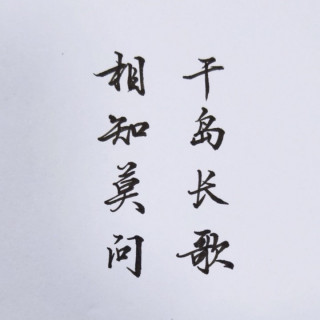 千岛长歌
相知莫问